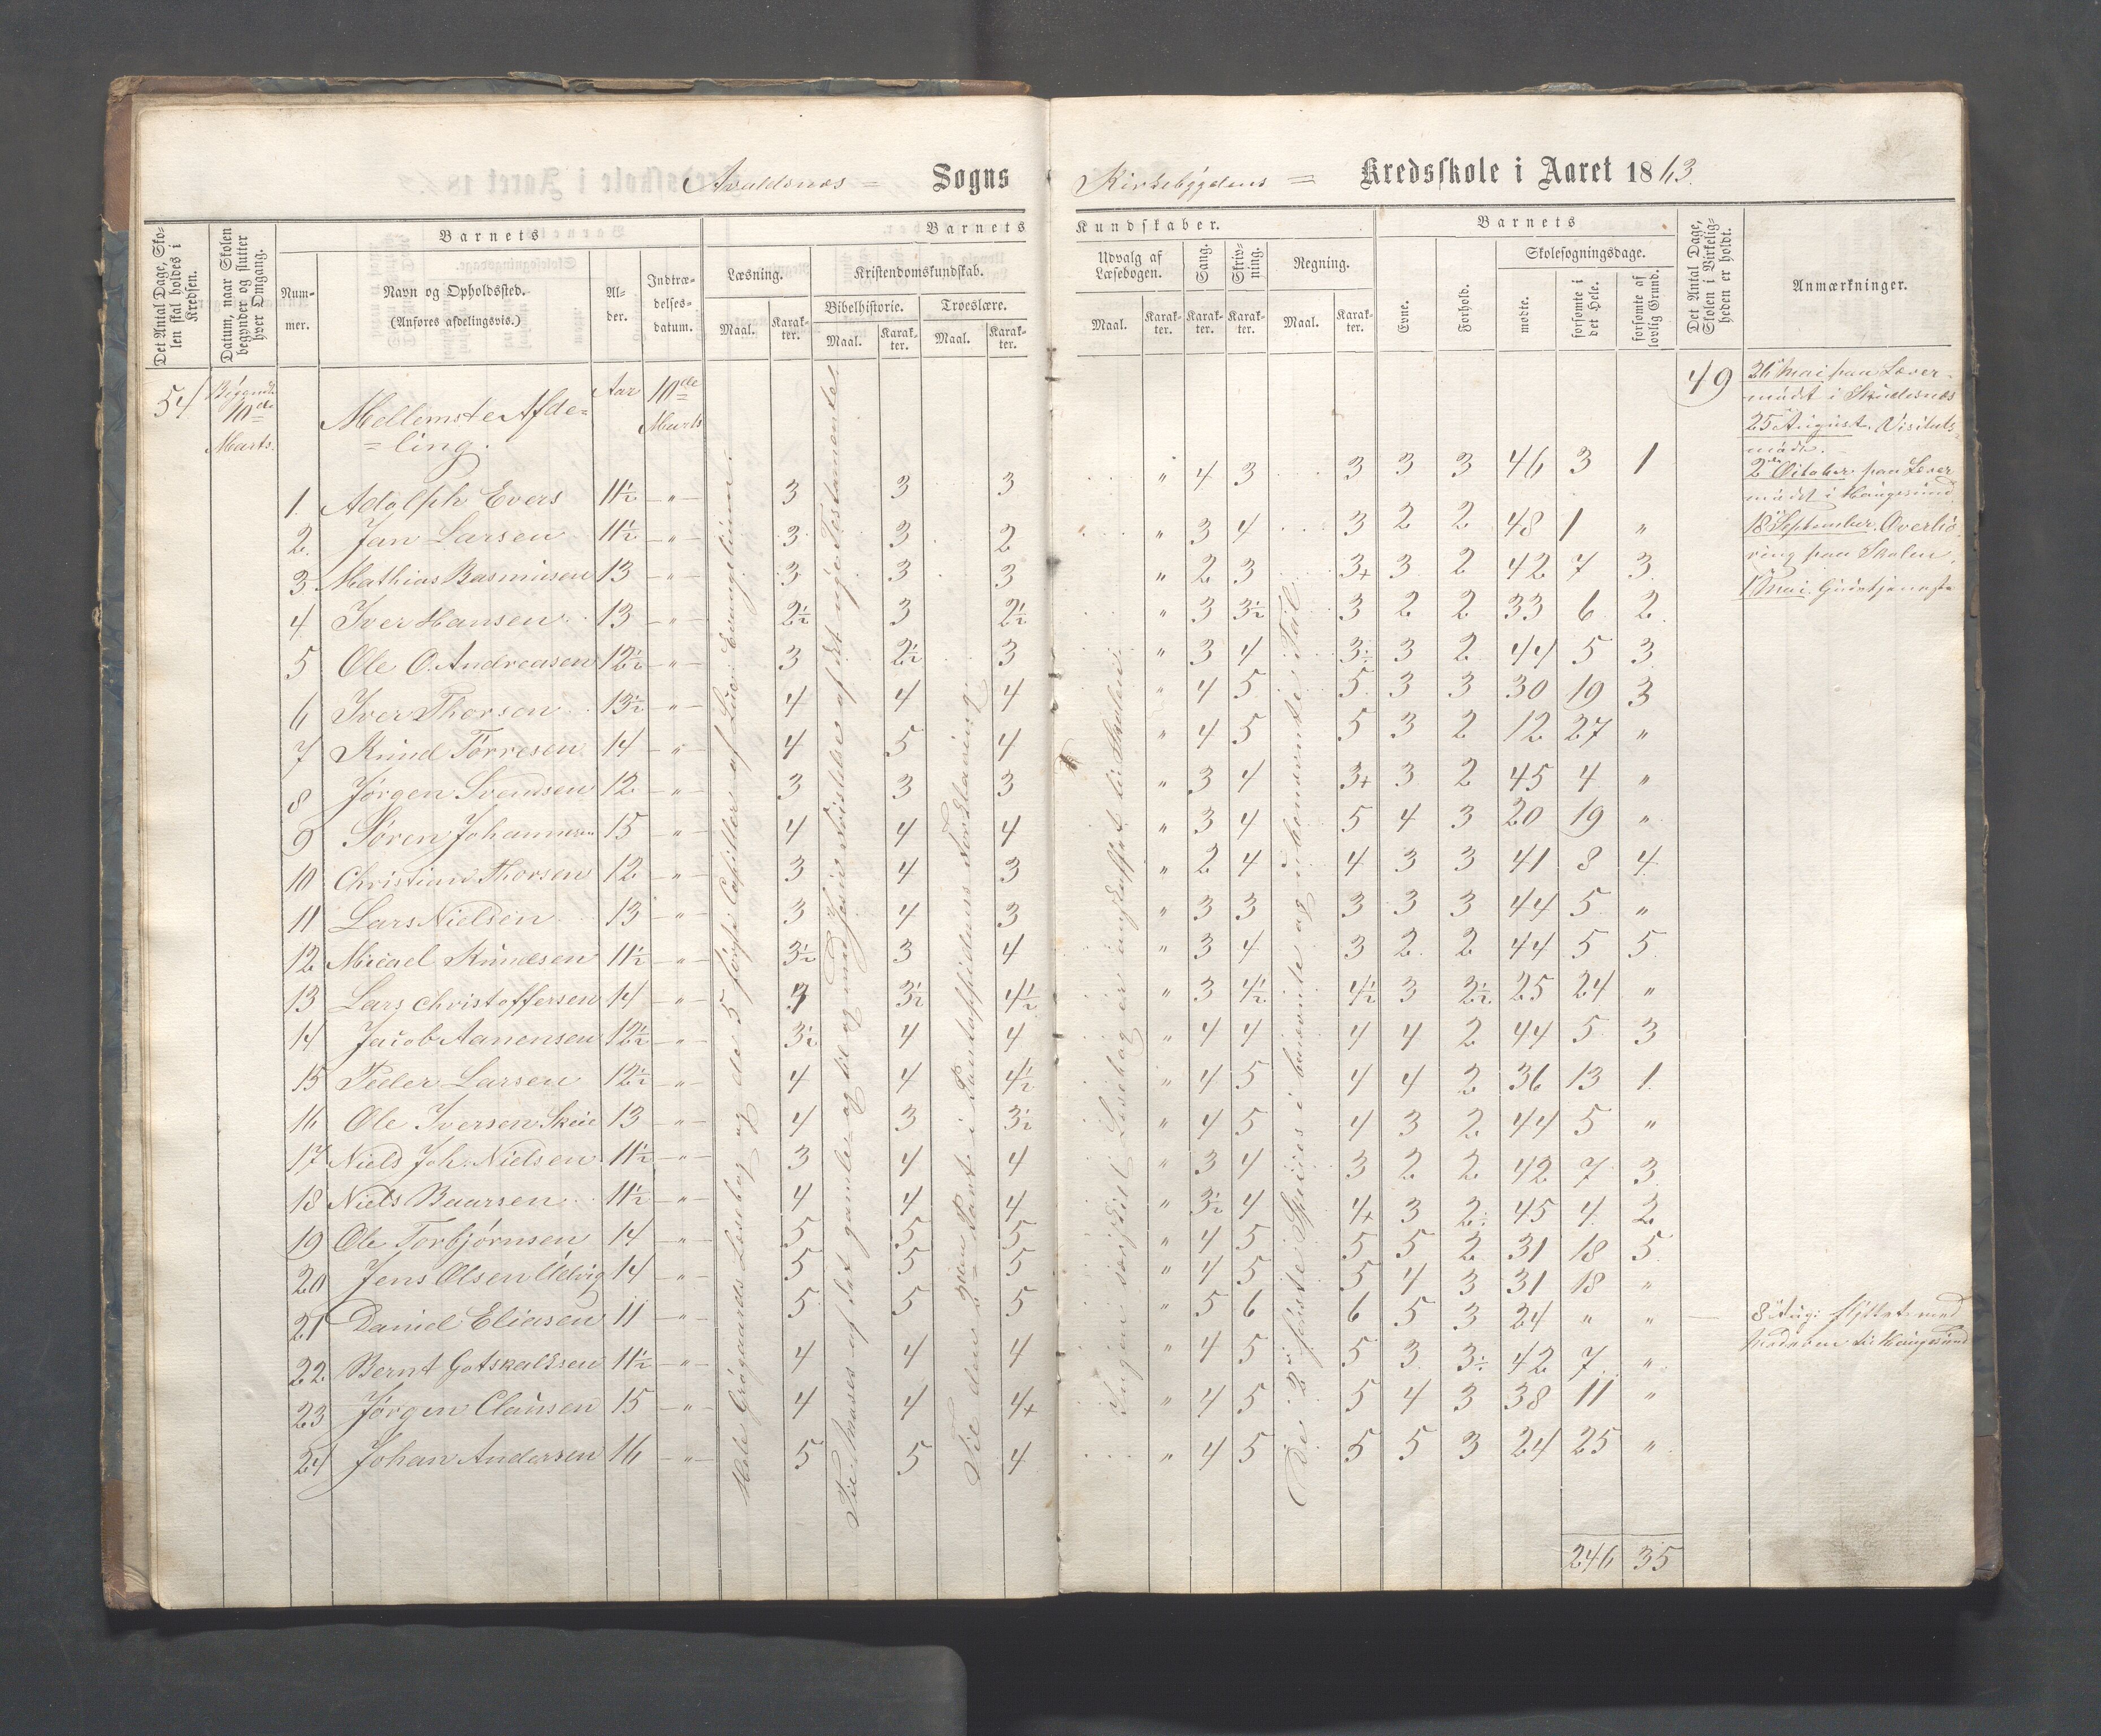 Avaldsnes = Sogns Kirkebygdens = Kredsskole i Aaret 1863.
Det Antal Dage, Skolen skal holdes i Kredsen.
Datum, naar Skolen begynder og slutter hver Omgang.
Barnets
Nummer.
Navn og Opholdssted.
(Anføres afdelingsvis.)
Alder.
Indtrædelsesdatum.
Barnets Kundskaber.
Læsning.
Maal. Karakter.
Kristendomskundskab.
Bibelhistorie.
Maal. Karakter.
Troeslære.
Maal. Karakter.
Udvalg af Læsebogen.
Maal. Karakter.
Sang.
Karakter.
Skrivning.
Karakter.
Regning.
Maal. Karakter.
Barnets
Evne.
Forhold.
Skolesøgningsdage.
mødte.
forsømte i det Hele.
forsømte af lovlig Grund.
Det Antal Dage, Skolen i Virkeligheden er holdt.
Anmærkninger.
54 Begyndte 10de Marts. Mellemste Afdeling. Aar 10de Marts 49
1. Adolph Evers 11½ – " – 3 3 3 " 4 3 3 3 3 46 3 1
2. Jan Larsen 11½ – " – 3 3 2 " 3 4 3 2 2 48 1 "
3. Mathias Rasmusen 13 – " – 3 3 3 " 2 3 3+ 3 2 42 7 3
4 Iver Hansen 13 – " – 2½ 3 2½ " 3 3½ 3 2 2 33 6 2
5 Ole O. Andreasen 12½ – " – 3 2½ 3 " 3 4 3÷ 3 2 44 5 3
6 Iver Thorsen 13½ – " – 4 4 4 " 4 5 5 3 3 30 19 3
7 Knud Tørresen 14 – " – 4 5 4 " 4 5 5 3 2 12 27 "
8 Jørgen Svendsen 12 – " – 3 3 3 " 3 4 3+ 3 2 45 4 "
9 Søren Johannesen 15 – " – 4 4 4 " 3 4 5 4 3 20 19 "
10 Christian Thorsen 12 – " – 3 4 3 " 2 4 4 3 3 41 8 4
11 Lars Nielsen 13 – " – 3 4 3 " 3 3 3 3 3 44 5 "
12 Micael Knudsen 11½ – " – 3½ 3 4 " 3 4 3 2 2 44 5 5
13 Lars Christoffersen 14 – " – 3 3½ 4½ " 3 4½ 4½ 3 2½ 25 24 "
14 Jacob Aanensen 12½ – " – 3½ 4 4 " 4 4 4 4 2 44 5 3
15 Peder Larsen 12½ – " – 4 4 4½ " 4 5 4 4 2 36 13 1
16 Ole Iversen Skeie 13 – " – 4 3 3½ " 4 5 4 3 2 44 5 "
17 Niels Joh. Nielsen 11½ – " – 3 4 4 " 3 4 3 2 2 42 7 3
18 Niels Baarsen 11½ – " – 4 4 4 " 3½ 4 4+ 3 2÷ 45 4 2
19 Ole Torbjørnsen 14 – " – 5 5 5 " 4 5 5 5 2 31 18 5
20 Jens Olsen Udvig 14 – " – 5 5 5 " 4 5 5 4 3 31 18 "
21 Daniel Eliasen 11 – " – 5 5 5 " 5 6 6 5 3 24 " "
22 Bernt Gotskalksen 11½ – " – 4 4 4 " 4 5 5 3 3÷ 42 7 "
23 Jørgen Clausen 15 – " – 4 4 4+ " 4 5 5 4 3 38 11 "
24 Johan Andersen 16 – " – 5 5 4 " 4 5 5 5 3 24 25 "
246 35
Hele Grøgaards Læsebog og de 5 første Capitler af Luc: Evangelium.
Til Moses af det gamle og til og med Jesu Fristelse af det nye Testamente.
Til den 2den Part i Pontoppidans Forklaring.
Ingen særskilt Læsebog er anskaffet til Skolen.
De 2 første Species i benævnte og ubenævnte Tal.
26 Mai paa Lærermødt i Skudesnæs
25 August. Visitatsmøde.
2 October paa Lærermødt i Haugesund
18 September. Overhøring paa Skolen.
1 Mai Gudstjeneste
8 Aug: flyttet med
til Haugesund